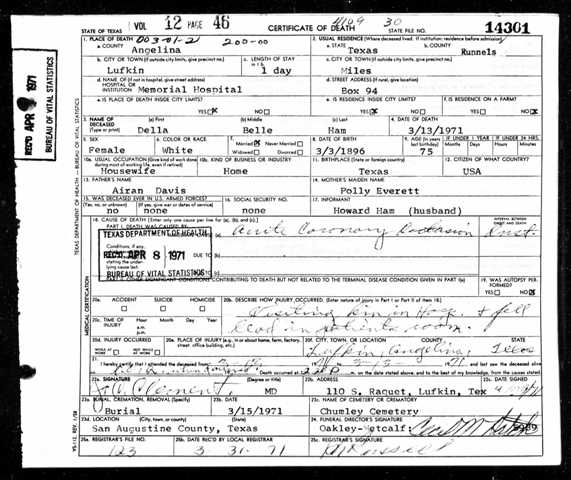 STATE OF TEXAS VOL 12 PAGE 46 CERTIFICATE OF DEATH 4109 30 14301
1. PLACE OF DEATH 003-01-21 200-00 2. USUAL RESIDENCE (Where deceased lived. If institution: residence before admission)
a. COUNTY Angelina a. STATE Texas b. COUNTY Runnels
b. CITY OR TOWN (If outside city limits, give precinct no.) c. LENGTH OF STAY in 1 b c. CITY OR TOWN (If outside city limits, give precinct no.)
Lufkin 1 day Miles
d. NAME OF (If not in hospital, give street address) HOSPITAL OR INSTITUTION Memorial Hospital d. STREET ADDRESS (If rural, give location) Box 94
e. IS PLACE OF DEATH INSIDE CITY LIMITS? e. IS RESIDENCE INSIDE CITY LIMITS? f. IS RESIDENCE ON A FARM?
YES NO YES NO YES NO
3. NAME OF DECEASED (Type or print) (a) First (b) Middle (c) Last 4. DATE OF DEATH
Della Belle Ham 3/13/1971
5. SEX 6. COLOR OR RACE 7. Married Never Married Widowed Divorced 8. DATE OF BIRTH 9. AGE (In years last birthday) IF UNDER 1 YEAR Months Days IF UNDER 24 HRS. Hours Min.
Female White 3/3/1896 75
10a. USUAL OCCUPATION (Give kind of work done during most of working life, even if retired) 10b. KIND OF BUSINESS OR INDUSTRY 11. BIRTHPLACE (State or foreign country) 12. CITIZEN OF WHAT COUNTRY?
Housewife Home Texas USA
13. FATHER'S NAME 14. MOTHER'S MAIDEN NAME
Airan Davis Polly Everett
15. WAS DECEASED EVER IN U.S. ARMED FORCES? 16. SOCIAL SECURITY NO. 17. INFORMANT
(Yes, no, or unknown) (If yes, give war or dates of service)
no none none Howard Ham (husband)
18. CAUSE OF DEATH (Enter only one cause per line for (a), (b), and (c).) INTERVAL BETWEEN ONSET AND DEATH
PART I. DEATH WAS CAUSED BY: Acute Coronary
TEXAS DEPARTMENT OF HEALTH
Conditions, if any,
REC'D APR 8 1971 DUE TO (b)
stating the underlying cause last.
BUREAU OF VITAL STATISTICS
PART II. OTHER SIGNIFICANT CONDITIONS CONTRIBUTING TO DEATH BUT NOT RELATED TO THE TERMINAL DISEASE CONDITION GIVEN IN PART I(a) 19. WAS AUTOPSY PERFORMED?
YES NO
20a. ACCIDENT SUICIDE HOMICIDE 20b. DESCRIBE HOW INJURY OCCURRED. (Enter nature of injury in Part I or Part II of item 18.)
Visiting kin in Hosp. & fell
20c. TIME OF INJURY Hour Month Day Year a.m. p.m. dead in patients room.
20d. INJURY OCCURRED WHILE AT WORK NOT WHILE AT WORK 20e. PLACE OF INJURY (e.g., in or about home, farm, factory, street, office building, etc.) 20f. CITY, TOWN, OR LOCATION COUNTY STATE
Lufkin, Angelina, Texas
21. I hereby certify that I attended the deceased from and last saw the deceased alive
Death occurred at on the date stated above, and to the best of my knowledge, from the causes stated.
22a. SIGNATURE (Degree or title) 22b. ADDRESS 22c. DATE SIGNED
Clement MD 110 S. Raguet, Lufkin, Tex
23a. BURIAL, CREMATION, REMOVAL (Specify) 23b. DATE 23c. NAME OF CEMETERY OR CREMATORY
Burial 3/15/1971 Chumley Cemetery
23d. LOCATION (City, town, or county) (State) 24. FUNERAL DIRECTOR'S SIGNATURE
San Augustine County, Texas Oakley-Metcalf:
25a. REGISTRAR'S FILE NO. 25b. DATE REC'D BY LOCAL REGISTRAR 25c. REGISTRAR'S SIGNATURE
123 3 31 71
REC'D APR 1971
BUREAU OF VITAL STATISTICS
TEXAS DEPARTMENT OF HEALTH — BUREAU OF VITAL STATISTICS
MEDICAL CERTIFICATION
VS-112 REV. 1/58